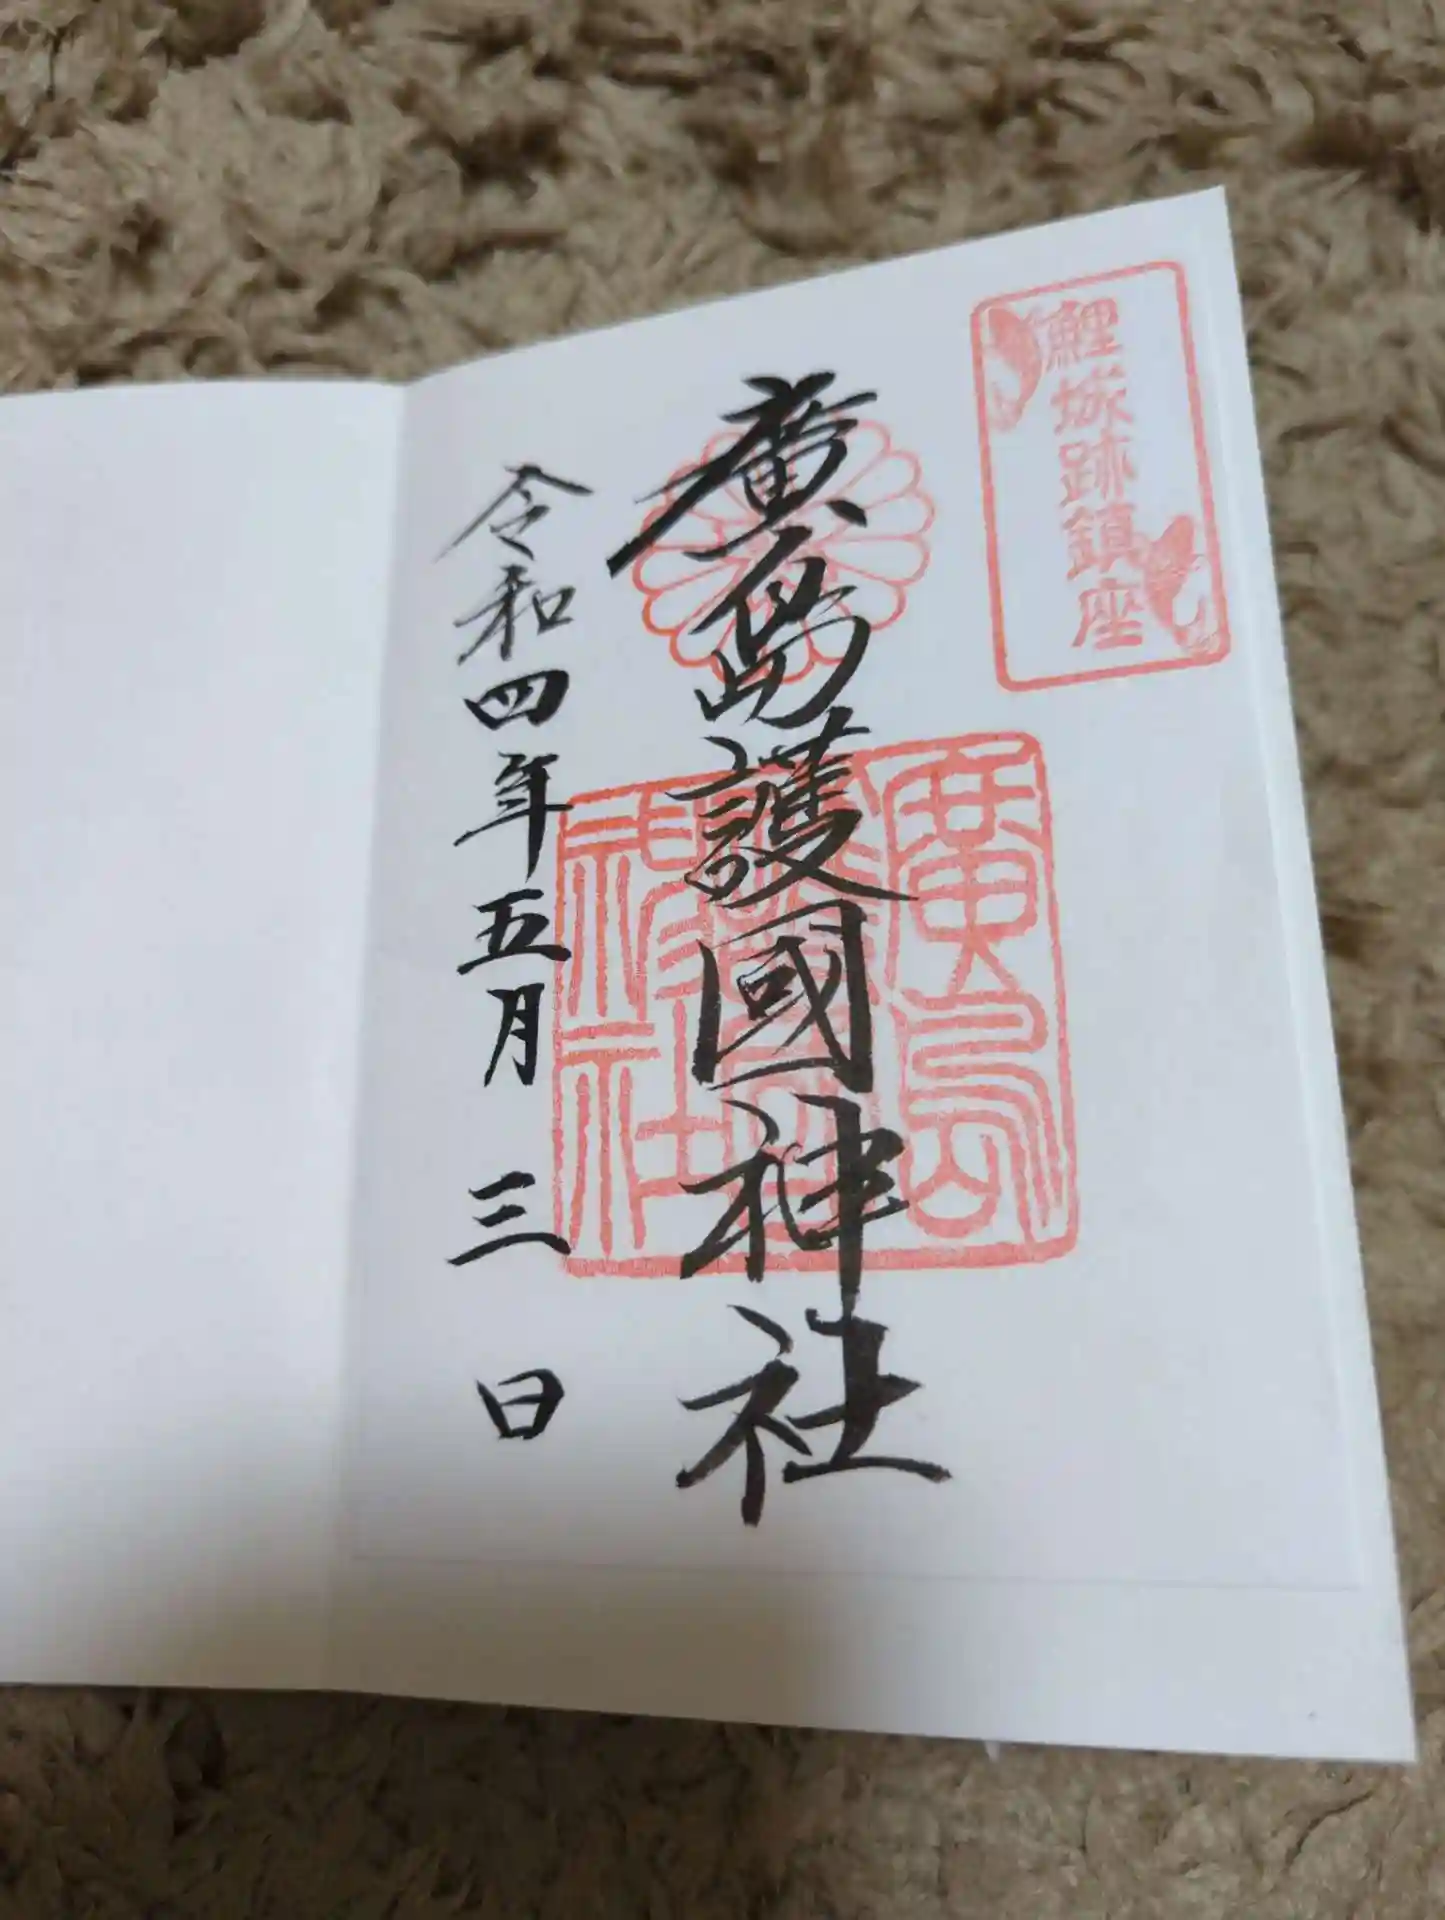 鯉城跡鎮座
廣島護國神社
令和四年五月三日
廣島
護國
神社